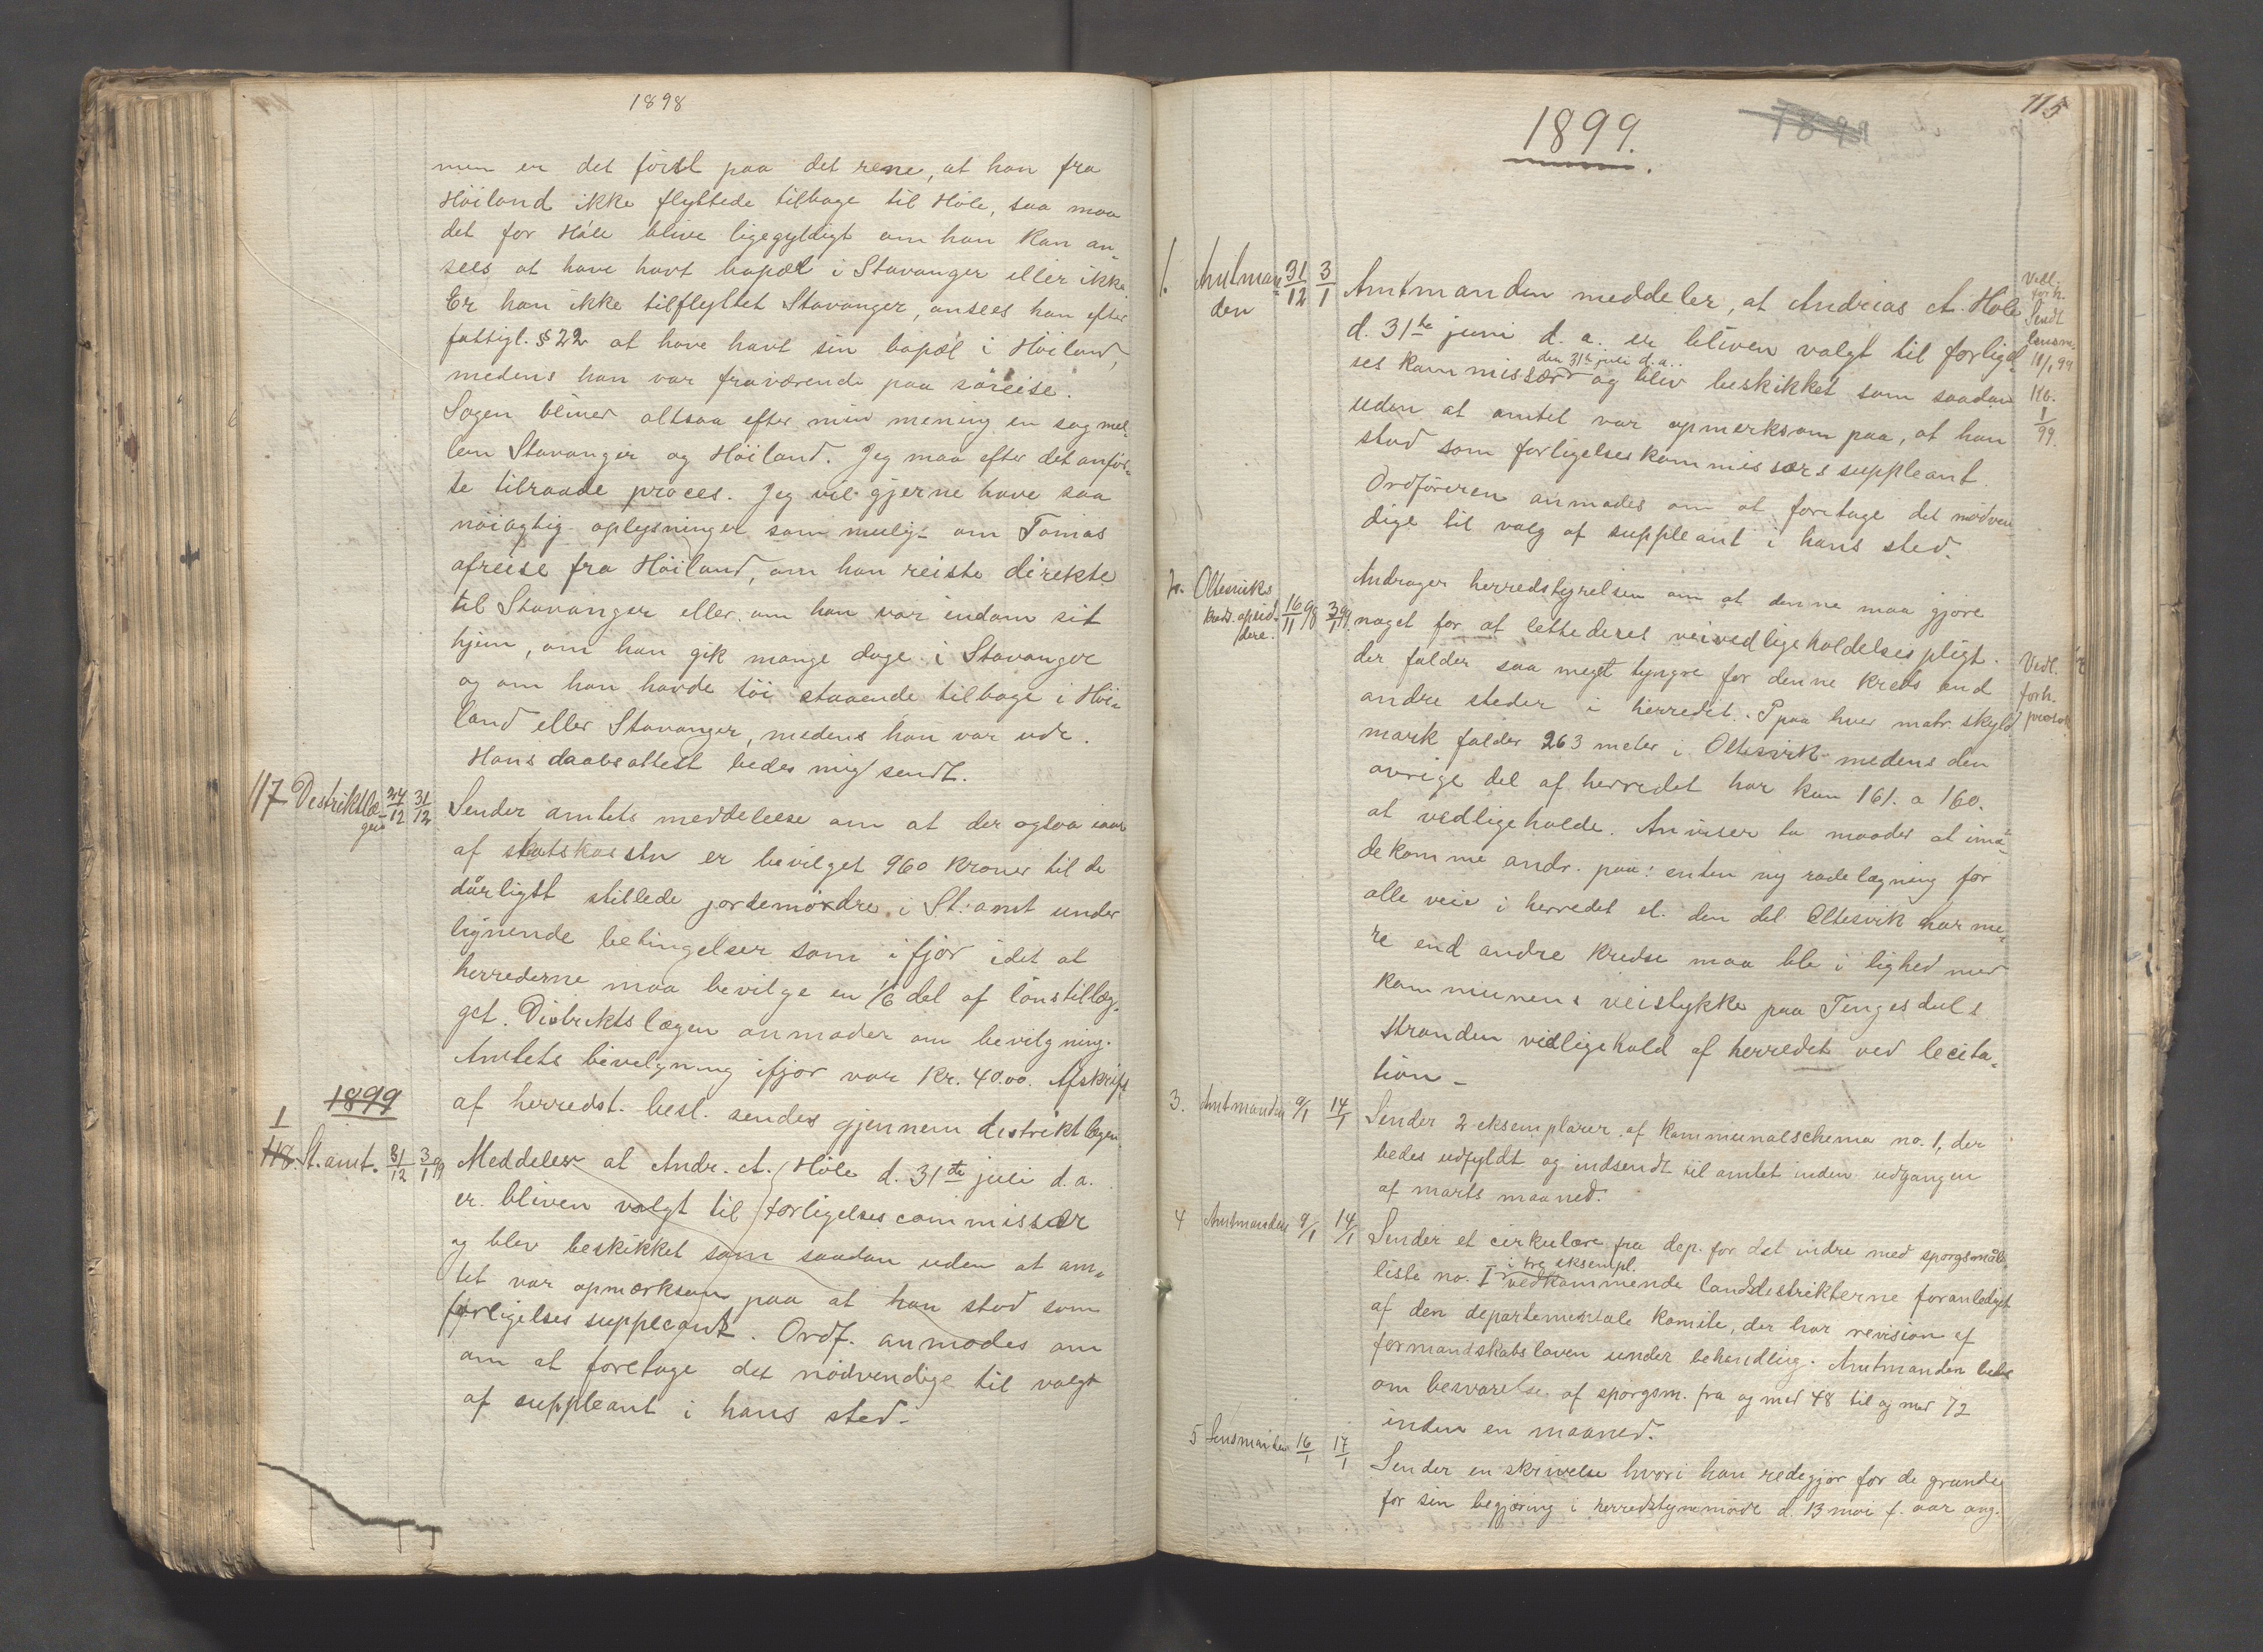 1898
men er det först paa det rene, at han fra
Höiland ikke flyttede tilbage til Höle, saa maa
det for Höle blive ligegyldigt om han kan an-
sees at have havt bopæl i Stavanger eller ikke.
Er han ikke tilflyttet Stavanger, ansees han efter
fattigl. § 22 at have havt sin bopæl i Höiland,
medens han var fraværende paa söreise.
Sagen bliver altsaa efter min mening en sag mel-
lem Stavanger og Höiland. Jeg maa efter det anför-
te tilraade proces. Jeg vil gjerne have saa
nöiagtig oplysninger som mulig om Tomas
afreise fra Höiland, om han reiste direkte
til Stavanger eller om han var indom sit
hjem, om han gik mange dage i Stavanger
og om han havde töi staaende tilbage i Höi-
land eller Stavanger, medens han var ude.
Hans daabsattest bedes mig sendt.
117 Destriktslæ-
gen 24/12 31/12 Sender amtets meddelelse om at der ogsaa iaar
af statskassen er bevilget 960 kroner til de
dårligst stillede jordemödre i St. amt under
lignende betingelser som ifjor idet at
herrederne maa bevilge en 1/6 del af lönstillæg-
get. Distriktslægen anmoder om bevilgning.
Amtets bivelgning ifjor var Kr. 40.00. Afskrift
af herredst. besl. sendes gjennem distriktlægen.
1899
1
118. St. amt. 31/12 3/1 99 Meddeler at Andr. A. Höle d. 31te juli d. a.
er bliven valgt til forligelsescommissær
og blev beskikket som saadan uden at am-
tet var opmærksom paa at han stod som
forligelses suppleant. Ordf. anmodes om
om at foretage det nödvendige til valgt
af suppleant i hans sted.
115
1899
1899.
1. Amtman-
den 31/12 3/1 Amtmanden meddeler, at Andreas A. Höle
d. 31te juni d. a. er bliven valgt til forligel-
den 31te juli d. a.
ses kommissær og blev beskikket som saadan
uden at amtet var opmerksom paa, at han
stod som forligelseskommissærs suppleant.
Ordföreren anmodes om at foretage det nödven-
dige til valg af suppleant i hans sted.
Vedl.
forh.
Sendt
lensm.
18/1 99
1/99.
2. Oltesviks
kreds opsid-
dere. 16/11 98 3/1 99. Andrager herredstyrelsen om at denne maa gjöre
noget for at lette deres veivedligeholdelsespligt.
der falder saa meget tyngre for denne kreds end
andre steder i herredet. Ppaa hver matr. skyld
mark falder 263 meter i Oltesvik medens den
övrige del af herredet har kun 161. a 160.
at vedligeholde. Anviser to maader at imö-
dekomme andr. paa: enten ny rodelægning for
alle veie i herredet el. den del Oltesvik har me-
re end andre kredse maa ble i lighed med
kommunens veistykke paa Tengesdals
stranden vedligehold af herredet ved lecita-
tion –
Vedl.
forh.
protok
3. Amtmanden 9/1 14/1 Sender 2 eksemplarer af kommunalschema no. 1, der
bedes udfyldt og indsendt til amtet inden udgangen
af marts maaned.
4 Amtmanden 9/1 14/1 Sender et cirkulære fra dep. for det indre med spörgsmåls-
i tre eksempl.
liste no. I vedkommende landdistrikterne foranlediget
af den departementale komite, der har revision af
formandskabsloven under behandling. Amtmanden beder
om besvarelse af spörgsm. fra og med 48 til og med 72
inden en maaned.
5 Lensmanden 16/1 17/1 Sender en skrivelse hvori han redegjör for de grunde
for sin begjæring i herredstyremöde d. 13 mai f. aar ang.